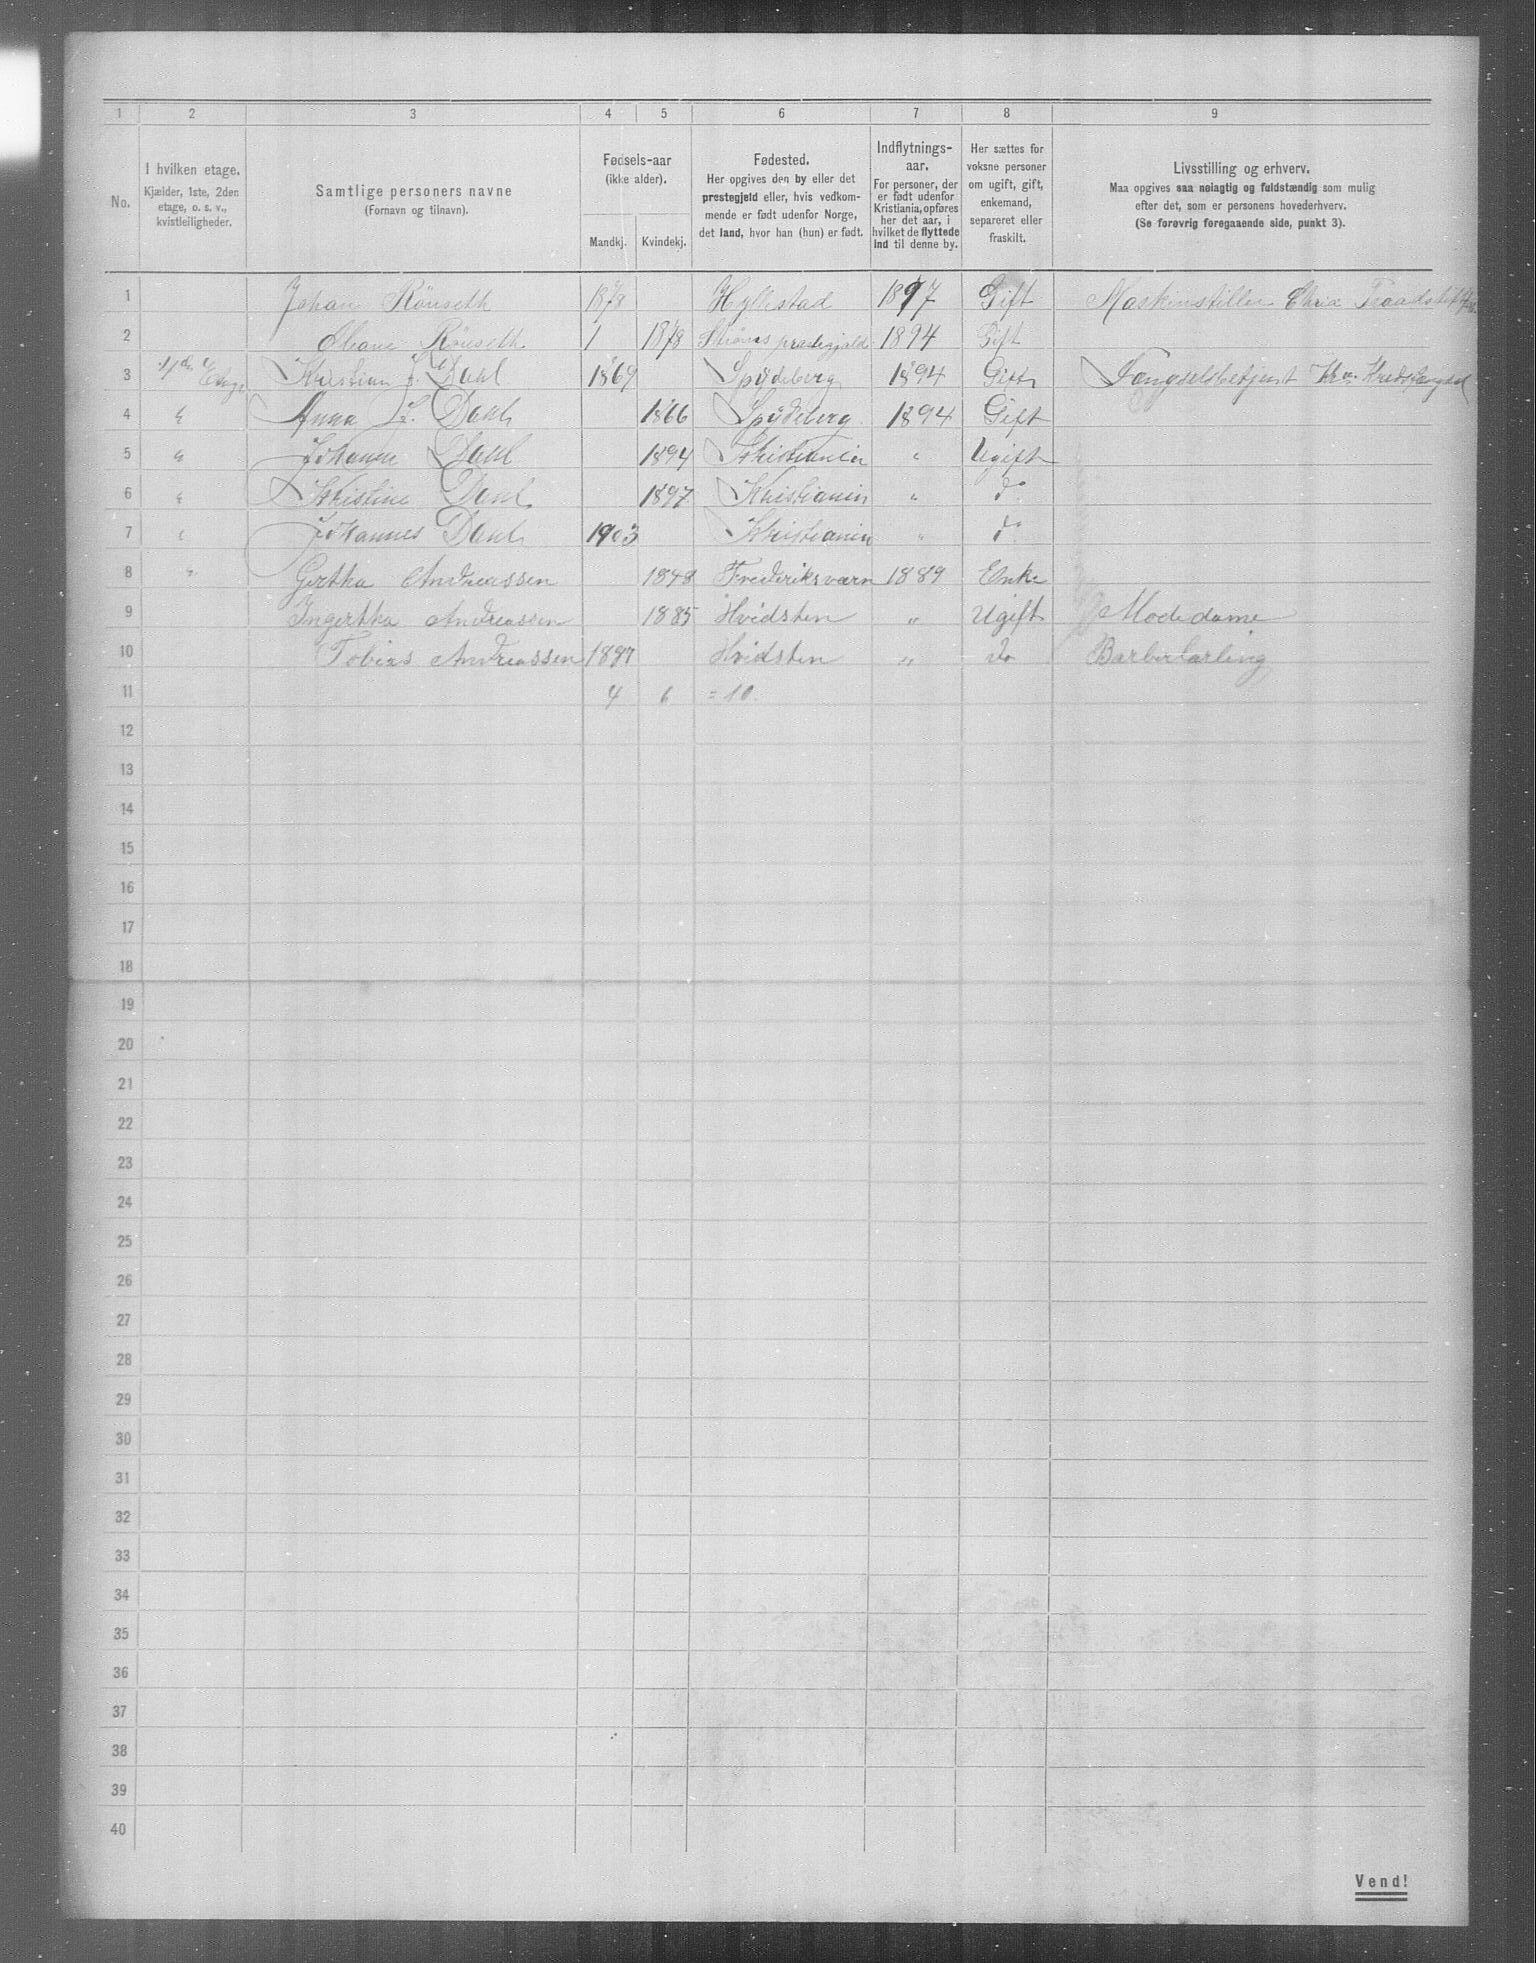 1 2 3 4 5 6 7 8 9
No.
I hvilken etage.
Kjælder, 1ste, 2den
etage, o. s. v.,
kvistleiligheder.
Samtlige personers navne
(Fornavn og tilnavn).
Fødsels-aar
(ikke alder).
Mandkj. Kvindekj.
Fødested.
Her opgives den by eller det
prestegjeld eller, hvis vedkom-
mende er født udenfor Norge,
det land, hvor han (hun) er født.
Indflytnings-
aar.
For personer, der
er født udenfor
Kristiania, opføres
her det aar, i
hvilket de flyttede
ind til denne by.
Her sættes for
voksne personer
om ugift, gift,
enkemand,
separeret eller
fraskilt.
Livsstilling og erhverv.
Maa opgives saa nøiagtig og fuldstændig som mulig
efter det, som er personens hovederhverv.
(Se forøvrig foregaaende side, punkt 3).
1 Johan Rönseth 1878 Hyllestad 1897 Gift Maskinstiller Chria
2 Rönseth 1 1878 prestegjeld 1894 Gift
3 Etage Kristian J. Dahl 1869 Spydeberg 1894 Gift Fængselsbetjent
4 " Anna J. Dahl 1866 Spydeberg 1894 Gift
5 " Johanne Dahl 1894 Kristiania " Ugift
6 " Kristine Dahl 1897 Kristiania " do
7 " Johannes Dahl 1903 Kristiania " do
8 " Gertha Andreassen 1848 Frederiksværn 1889 Enke
9 Ingertha Andreassen 1885 Hvidsten " Ugift Modedame
10 Tobias Andreassen 1887 Hvidsten " do Barberlærling
11 4 6 = 10.
12
13
14
15
16
17
18
19
20
21
22
23
24
25
26
27
28
29
30
31
32
33
34
35
36
37
38
39
40
Vend!